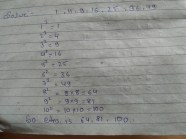 1, 4, 9, 16, 25, 36, 49
1² = 1
2² = 4
3² = 9
4² = 16
5² = 25
6² = 36
7² = 49
8² = 8×8 = 64
9² = 9×9 = 81
10² = 10×10 = 100
64, 81, 100.